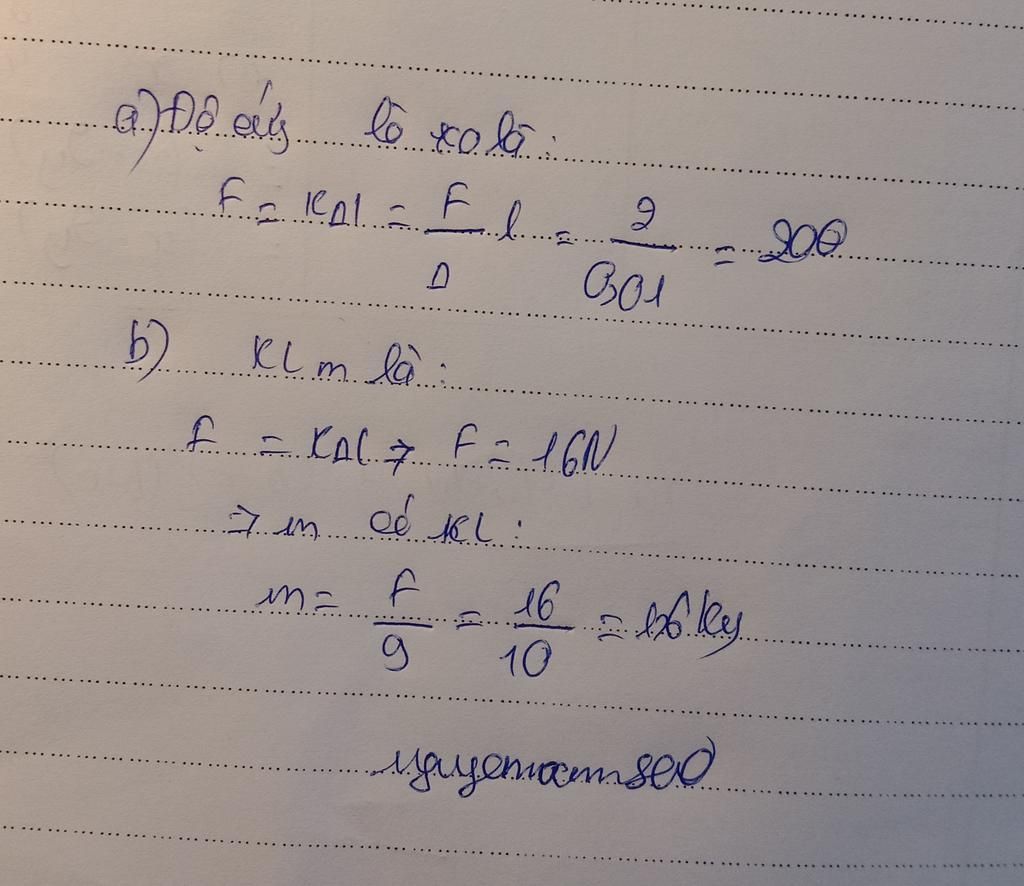 a) Độ cứng lò xo là:
F = KΔl = F/Δ l = 2/0,01 = 200
b) KL m là:
F = KΔl => F = 16N
=> m có KL:
m = F/g = 16/10 = 1,6 Kg